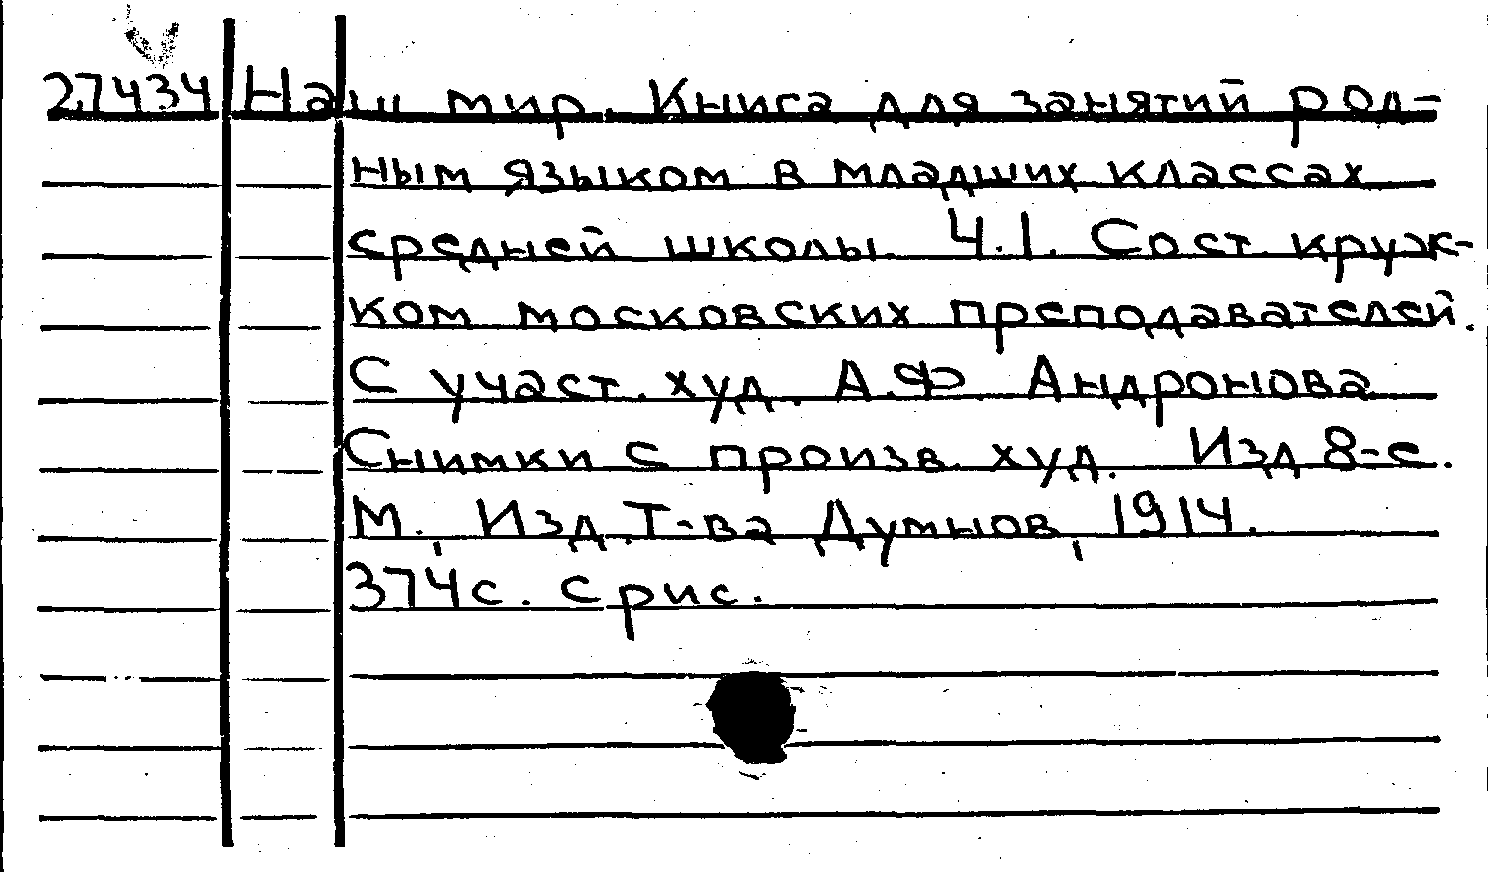 27434 Наш мир. Книга для занятий род-
ным языком в младших классах
средней школы. Ч.1. Сост. круж-
ком московских преподавателей.
С участ. худ. А.Ф. Андронова
Снимки с произв. худ. Изд 8-е.
М., Изд. Т-ва Думнов, 1914.
374с. с рис.